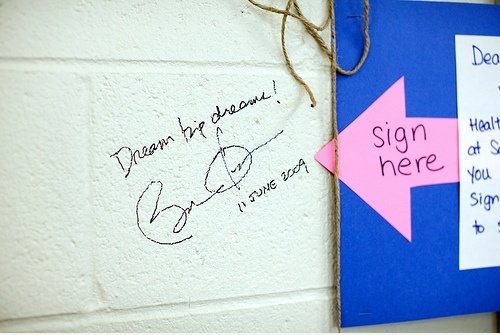 Dream big dreams!
11 JUNE 2009
sign
here
Dea
Healt
at S
you
Sign
to s